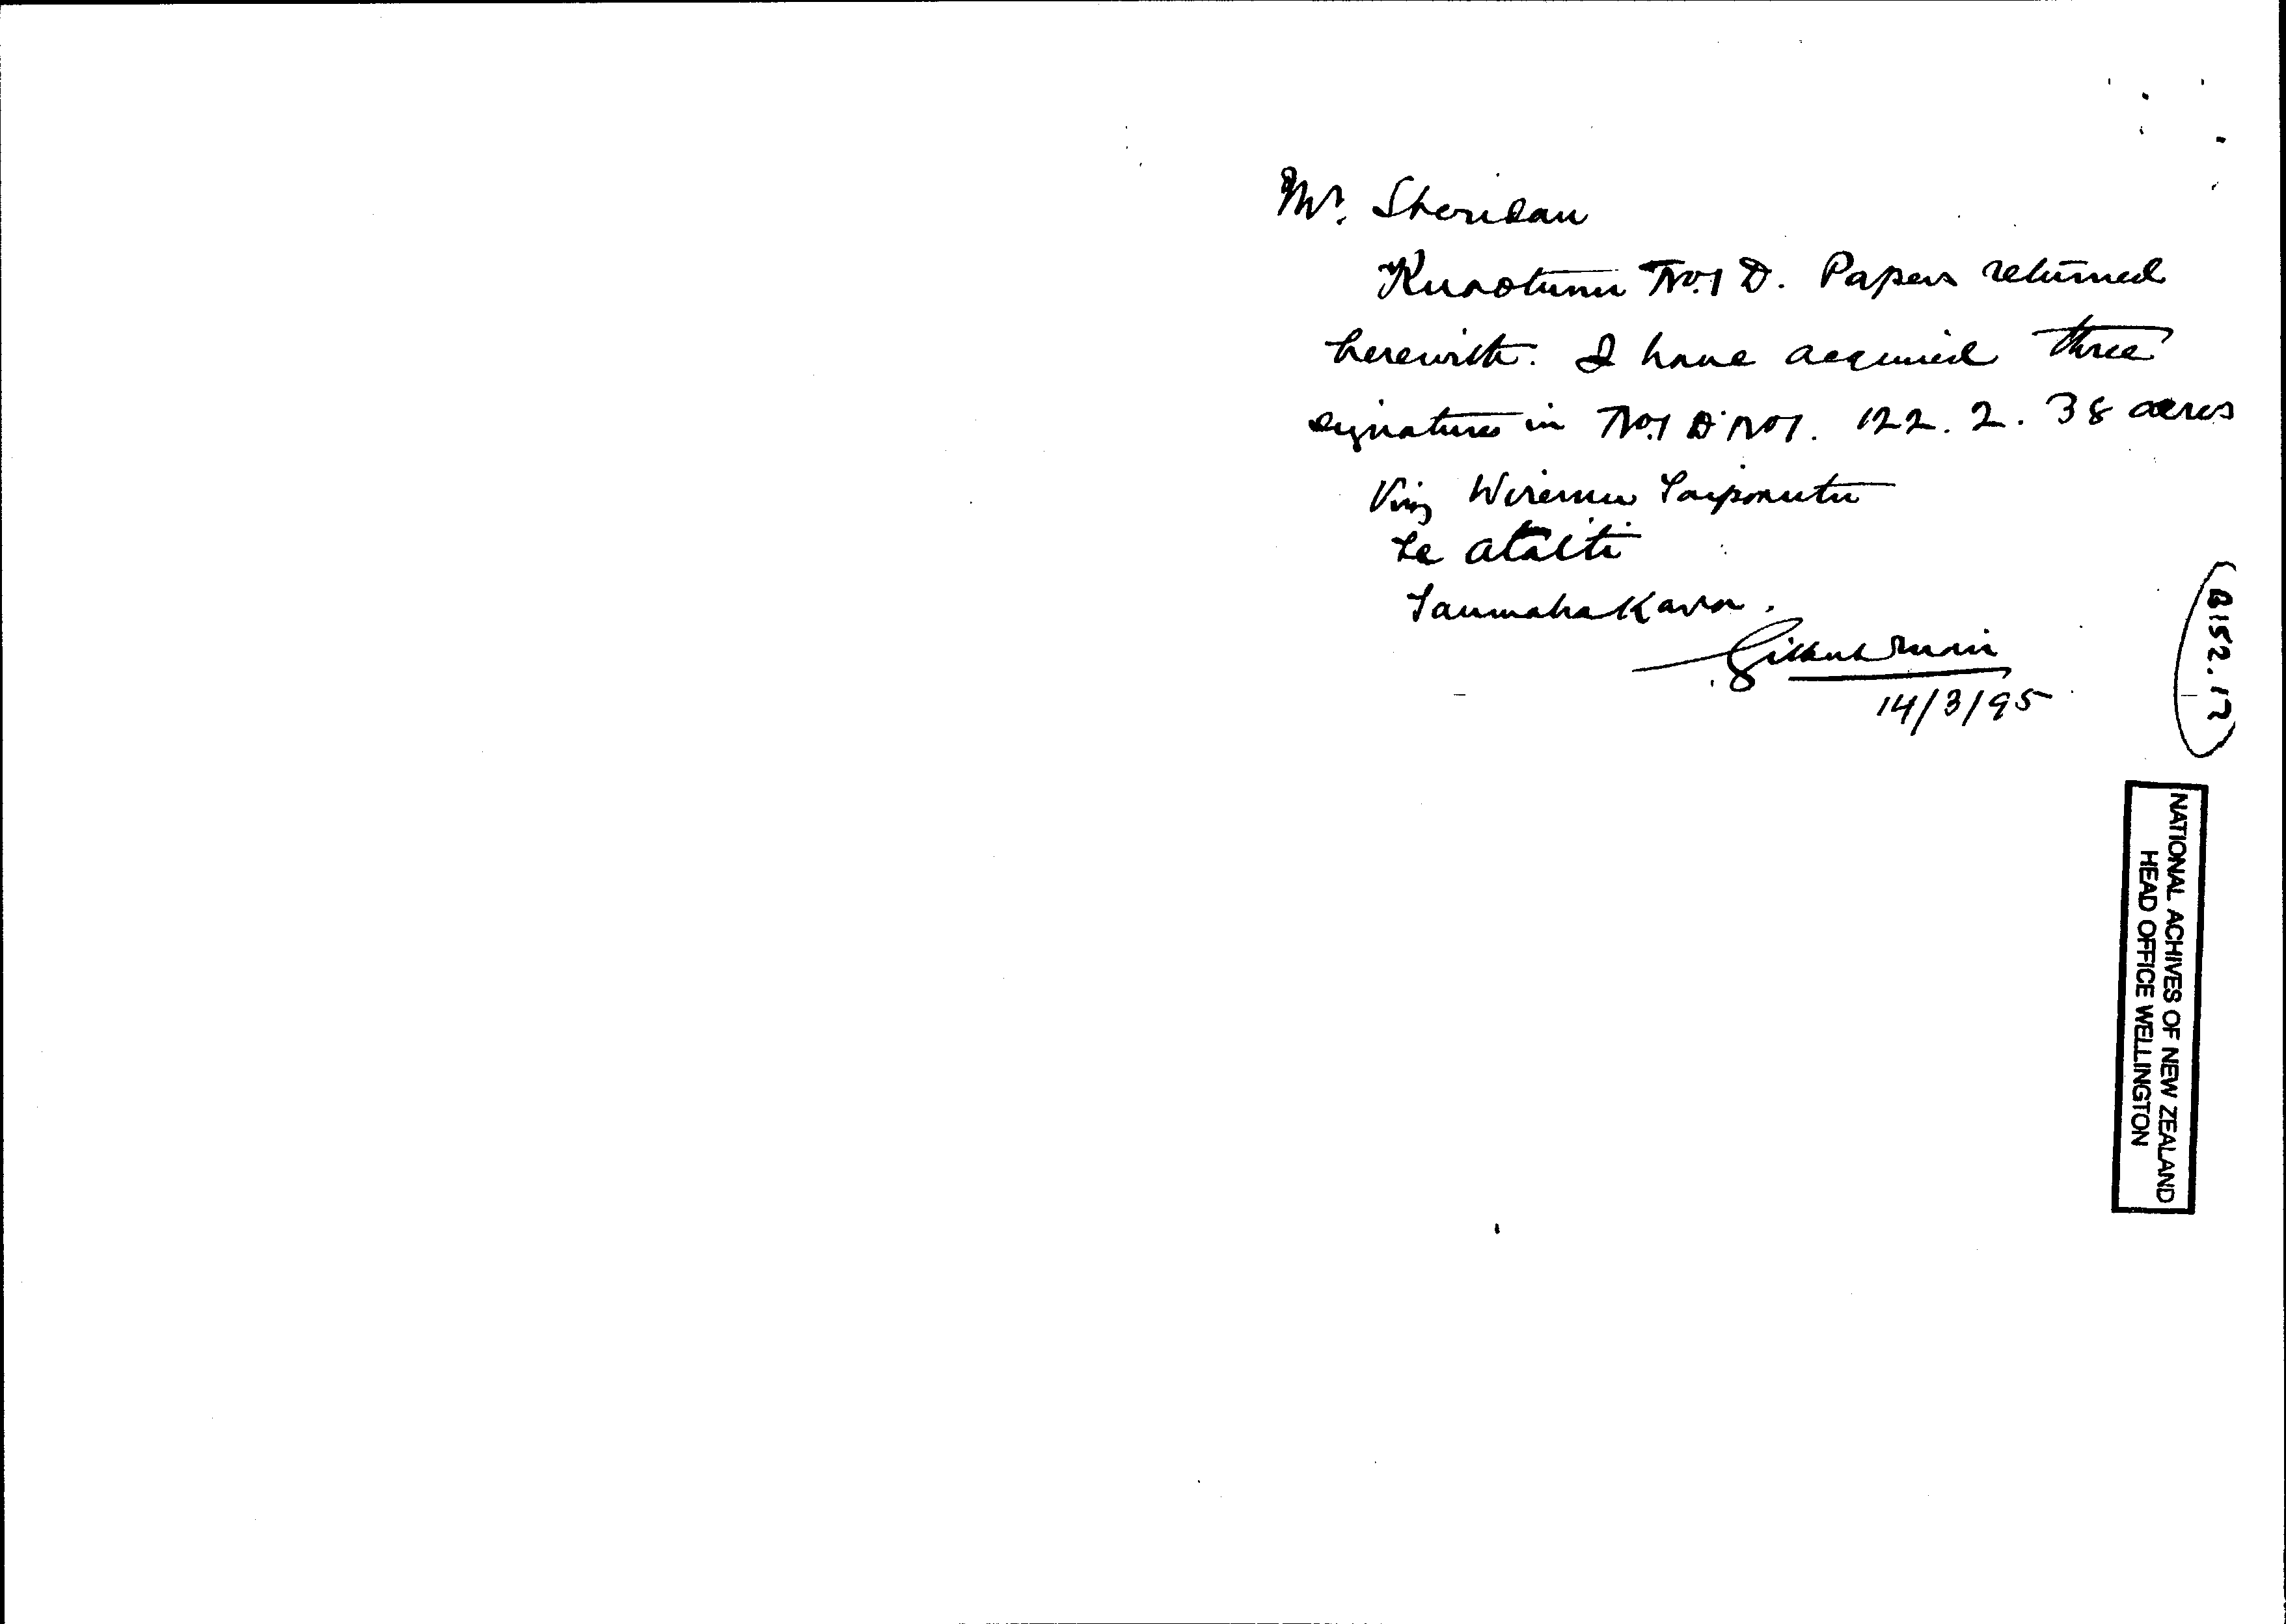 Mr. Sheridan
Kuaotunu No. 1 D. Papers returned
herewith. I have acquired three
signatures in No. 1 D No 1. 122. 2. 38 acres
Viz Wiremu Taiporutu
Te Ataiti
Taumaha Kawa.
Gilbert Mair
14/3/95
B152.17
NATIONAL ACHIVES OF NEW ZEALAND
HEAD OFFICE WELLINGTON